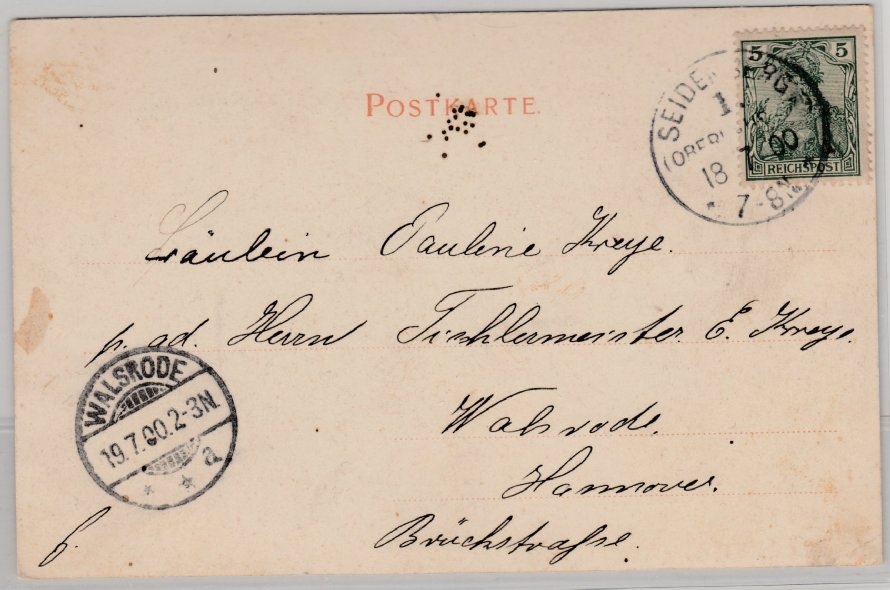 POSTKARTE.
5 5
REICHSPOST
SEIDENBERG
18 7 00
* 7-8N
Fräulein Pauline Kreye.
p. ad. Herrn Tischlermeister E. Kreye.
Walsrode.
Hannover.
Brückstraße.
WALSRODE
19.7.00.2-3N
* * a